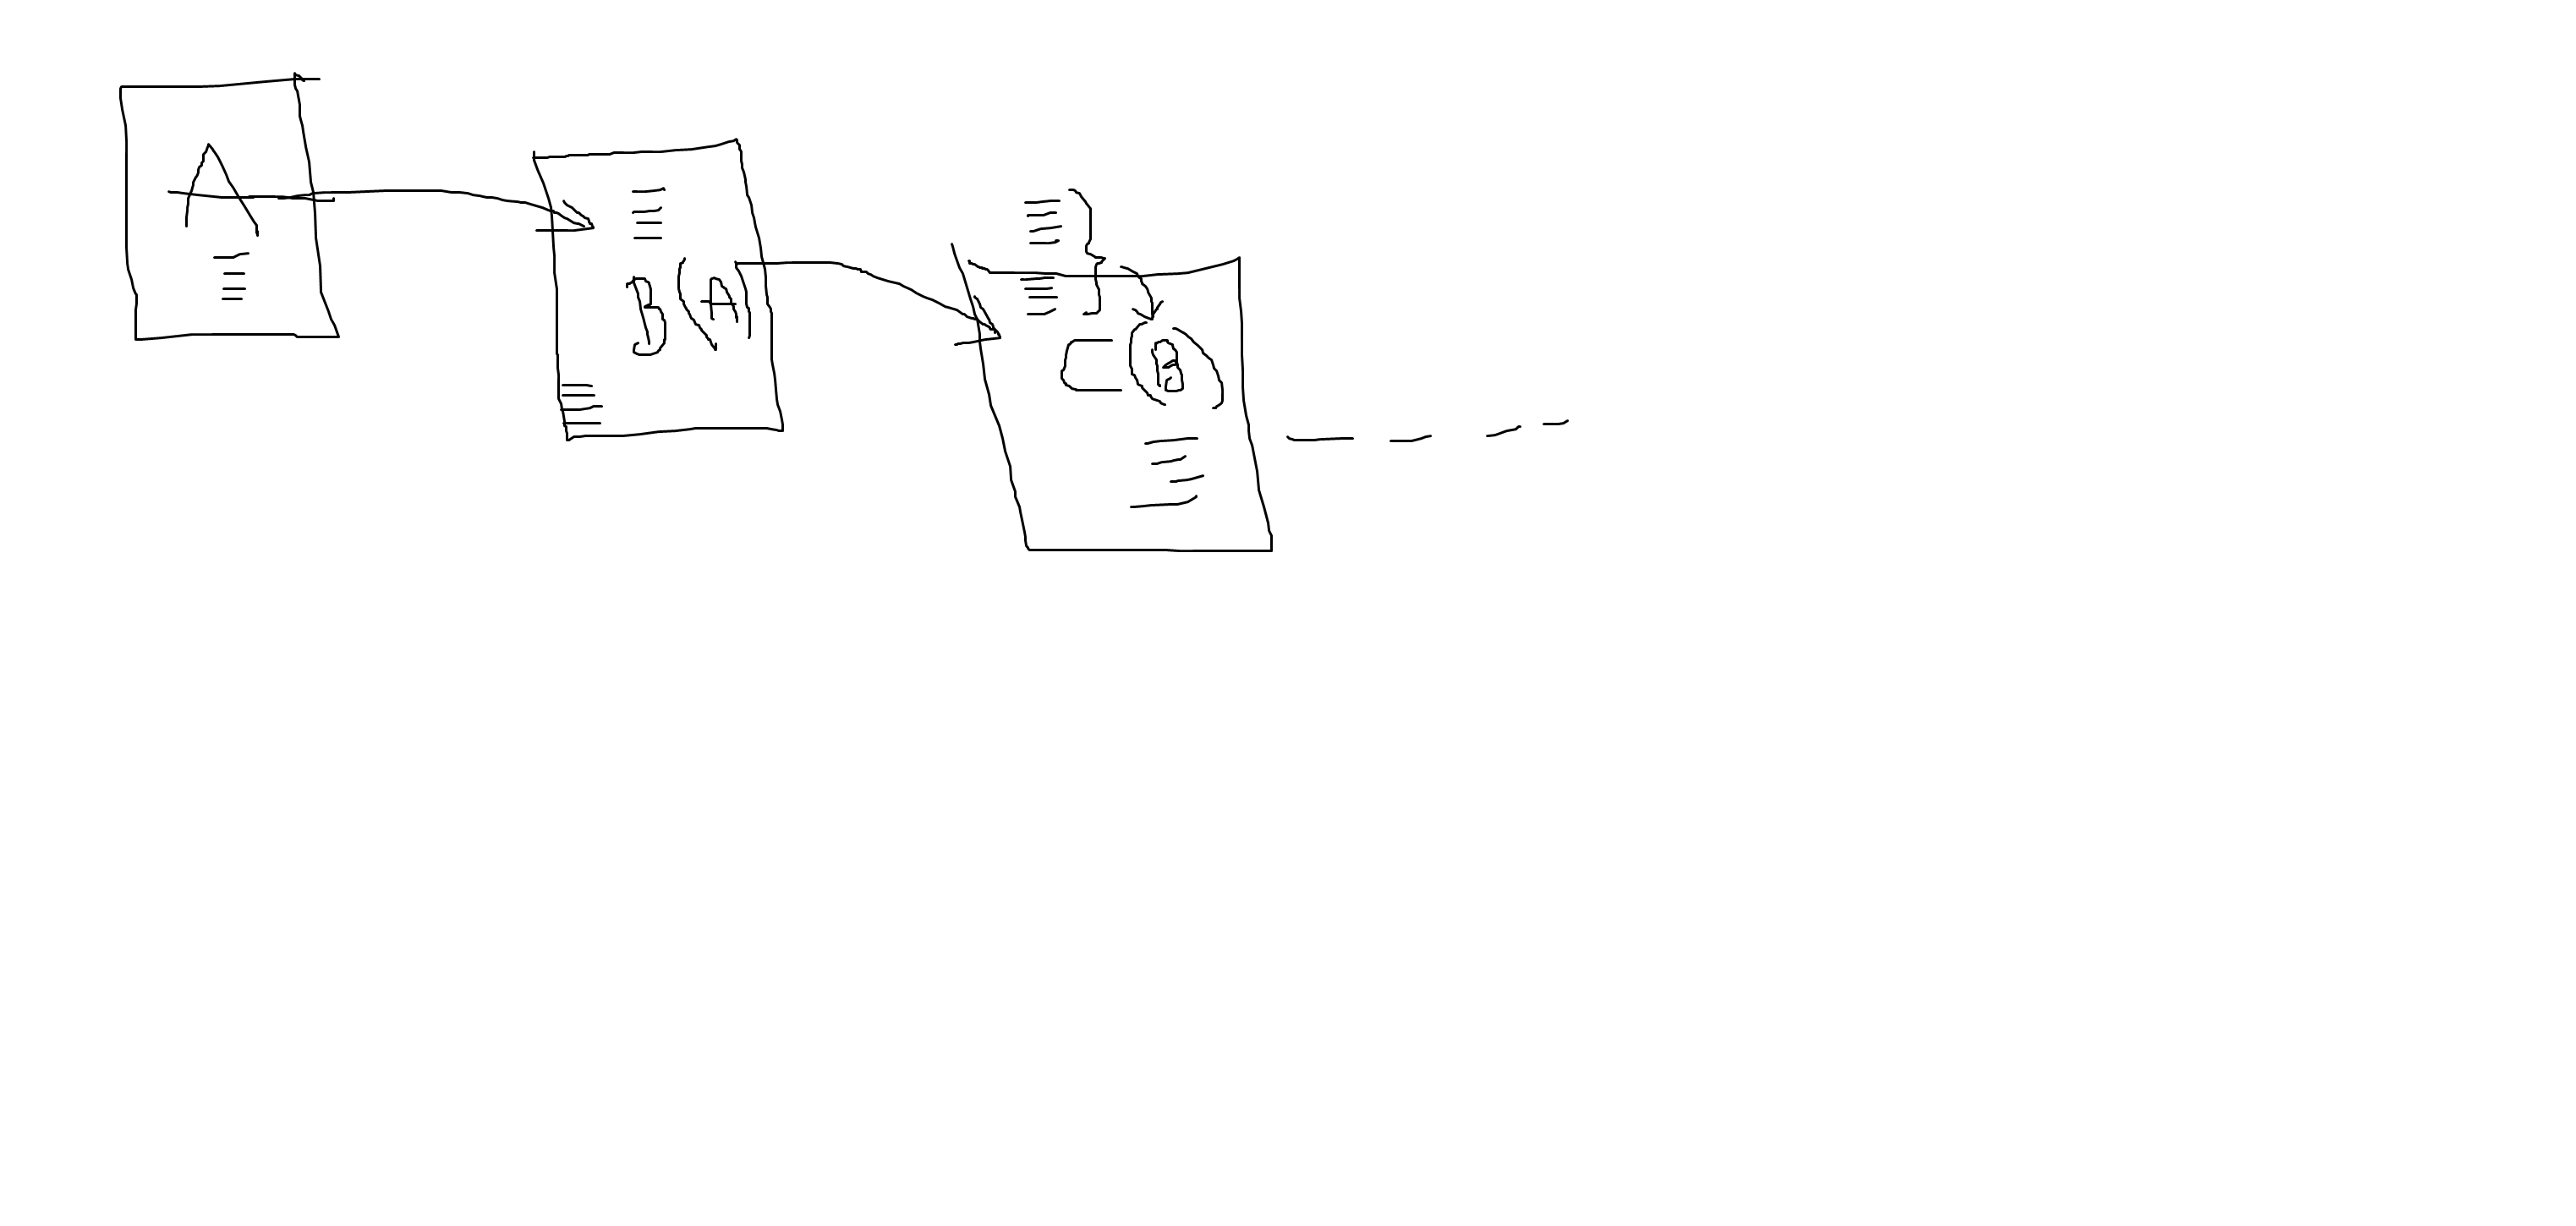 A
B(A)
C(B)